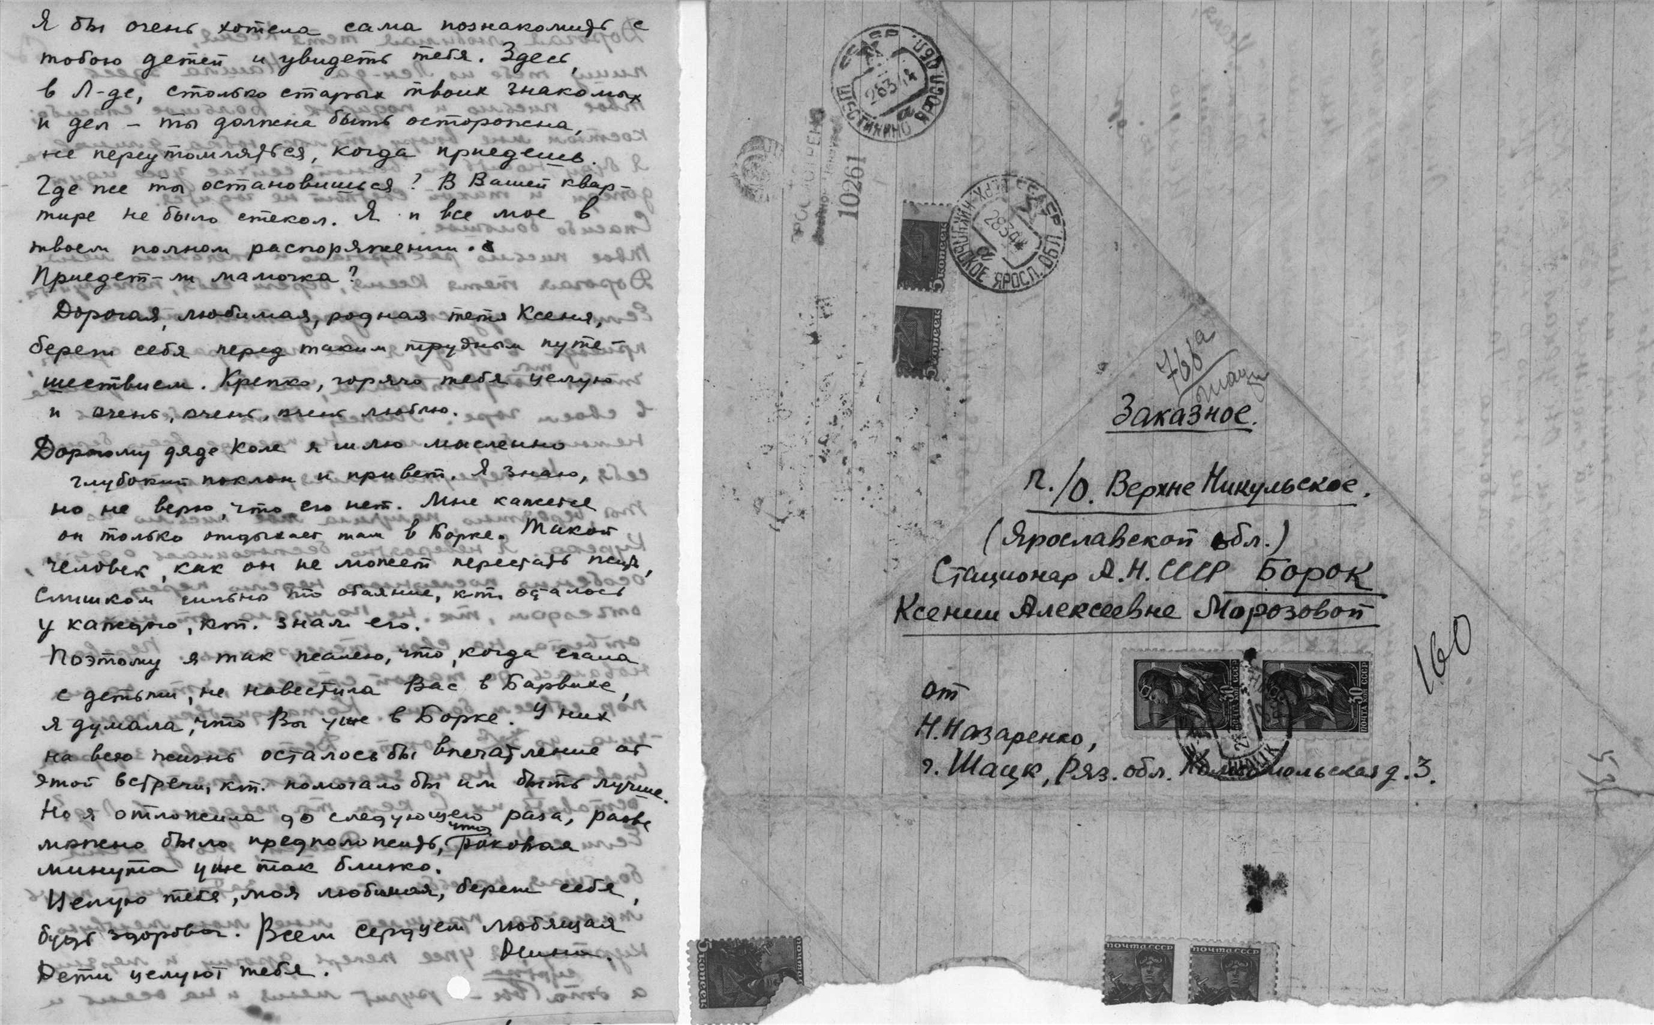 Я бы очень хотела сама познакомить с
тобою детей и увидеть тебя. Здесь,
в Л-де, столько старых твоих знакомых
и дел – ты должна быть осторожна,
не переутомляться, когда приедешь.
Где же ты остановишься? В Вашей квар-
тире не было стекол. Я и все мое в
твоем полном распоряжении.
Приедет-ли мамочка?
Дорогая, любимая, родная тетя Ксеня,
береги себя перед таким трудным путе-
шествием. Крепко, горячо тебя целую
и очень, очень, очень люблю.
Дорогому дяде Коле я шлю мысленно
глубокий поклон и привет. Я знаю,
но не верю, что его нет. Мне кажется
он только отдыхает там в Борке. Такой
человек, как он не может перестать жить,
слишком сильно то обаяние, кт. осталось
у каждого, кт. знал его.
Поэтому я так жалею, что, когда ехала
с детьми, не навестила Вас в Барвихе,
я думала, что Вы уже в Борке. У них
на всю жизнь осталось бы впечатление от
этой встречи, кт. помогало бы им быть лучше.
Но я отложила до следующего раза, разве
можно было предположить, что роковая
минута уже так близко.
Целую тебя, моя любимая, береги себя,
будь здорова. Всем сердцем любящая
Нина.
Дети целуют тебя.
СССР
ШЕСТИХИНО ЯРОСЛ. ОБЛ.
10261
СССР
ЯРОСЛ. ОБЛ.
5 КОПЕЕК
5 КОПЕЕК
768а
Заказное.
п./о. Верхне Никульское.
(Ярославской обл.)
Стационар А.Н. СССР Борок
Ксении Алексеевне Морозовой
160
30 ПОЧТА СССР
30 ПОЧТА СССР
от
Н. Назаренко,
г. Шацк, Ряз. обл. Комсомольская д. 3.
5 КОПЕЕК
ПОЧТА СССР
ПОЧТА СССР